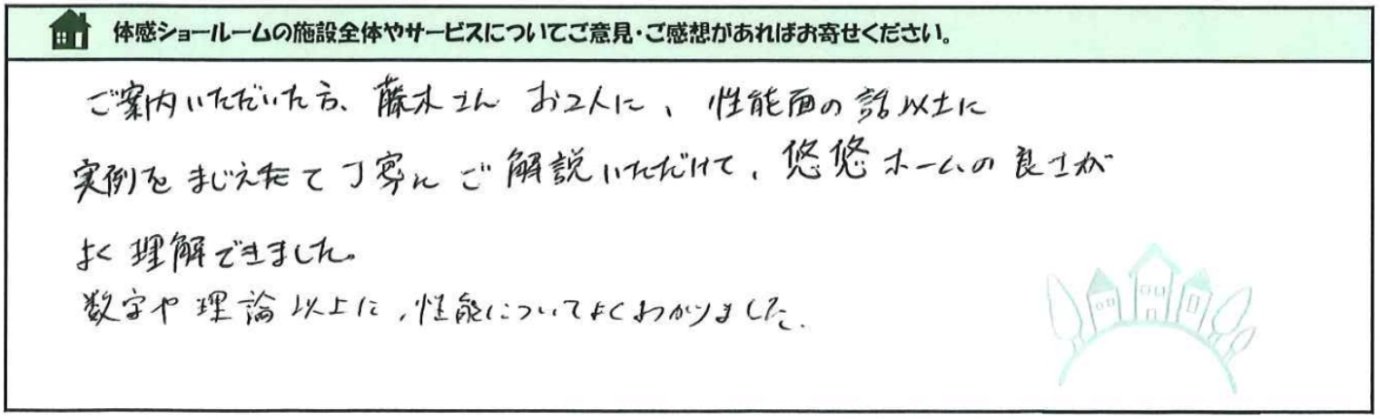 体感ショールームの施設全体やサービスについてご意見・ご感想があればお寄せください。
ご案内いただいた方、藤木さん お2人に、性能面の話以上に
実例をまじえて丁寧にご解説いただけて、悠悠ホームの良さが
よく理解できました。
数字や理論以上に、性能についてよくわかりました。